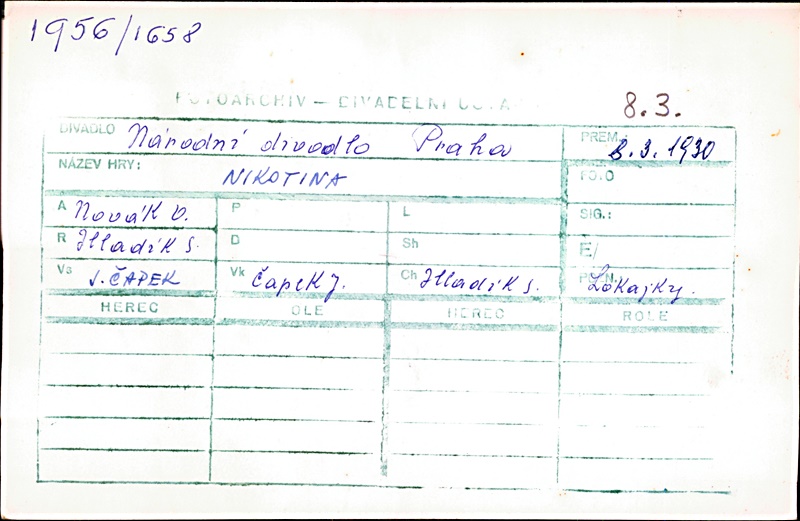 1956/1658
FOTOARCHIV – DIVADELNÍ ÚSTA
8.3.
DIVADLO Národní divadlo Praha PREM.: 8.3.1930
NÁZEV HRY: NIKOTINA FOTO
A Novák V. P L SIG.:
R Hladík S. D Sh E/
Vs J. ČAPEK Vk Čapek J. Ch Hladík S. Lokajky.
HEREC OLE HEREC ROLE